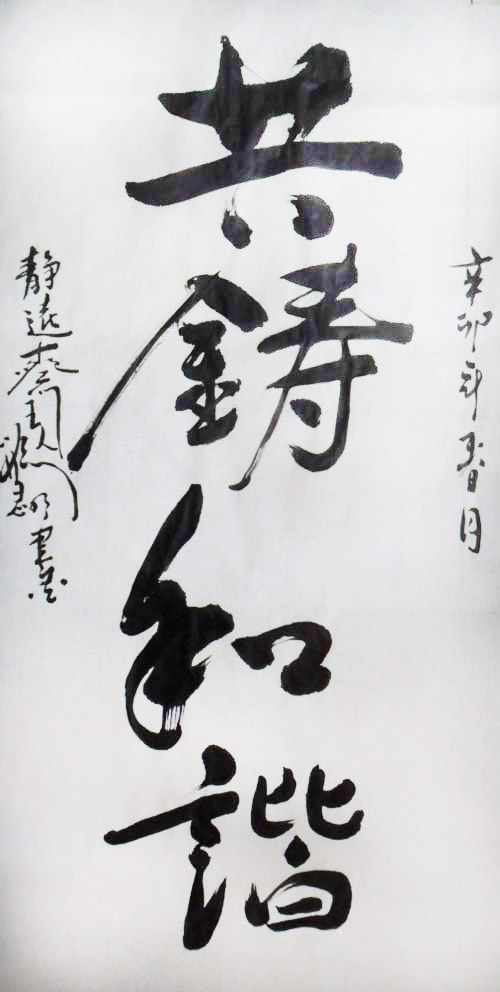 辛卯年春月
共鑄和諧
靜遠齋主人
書